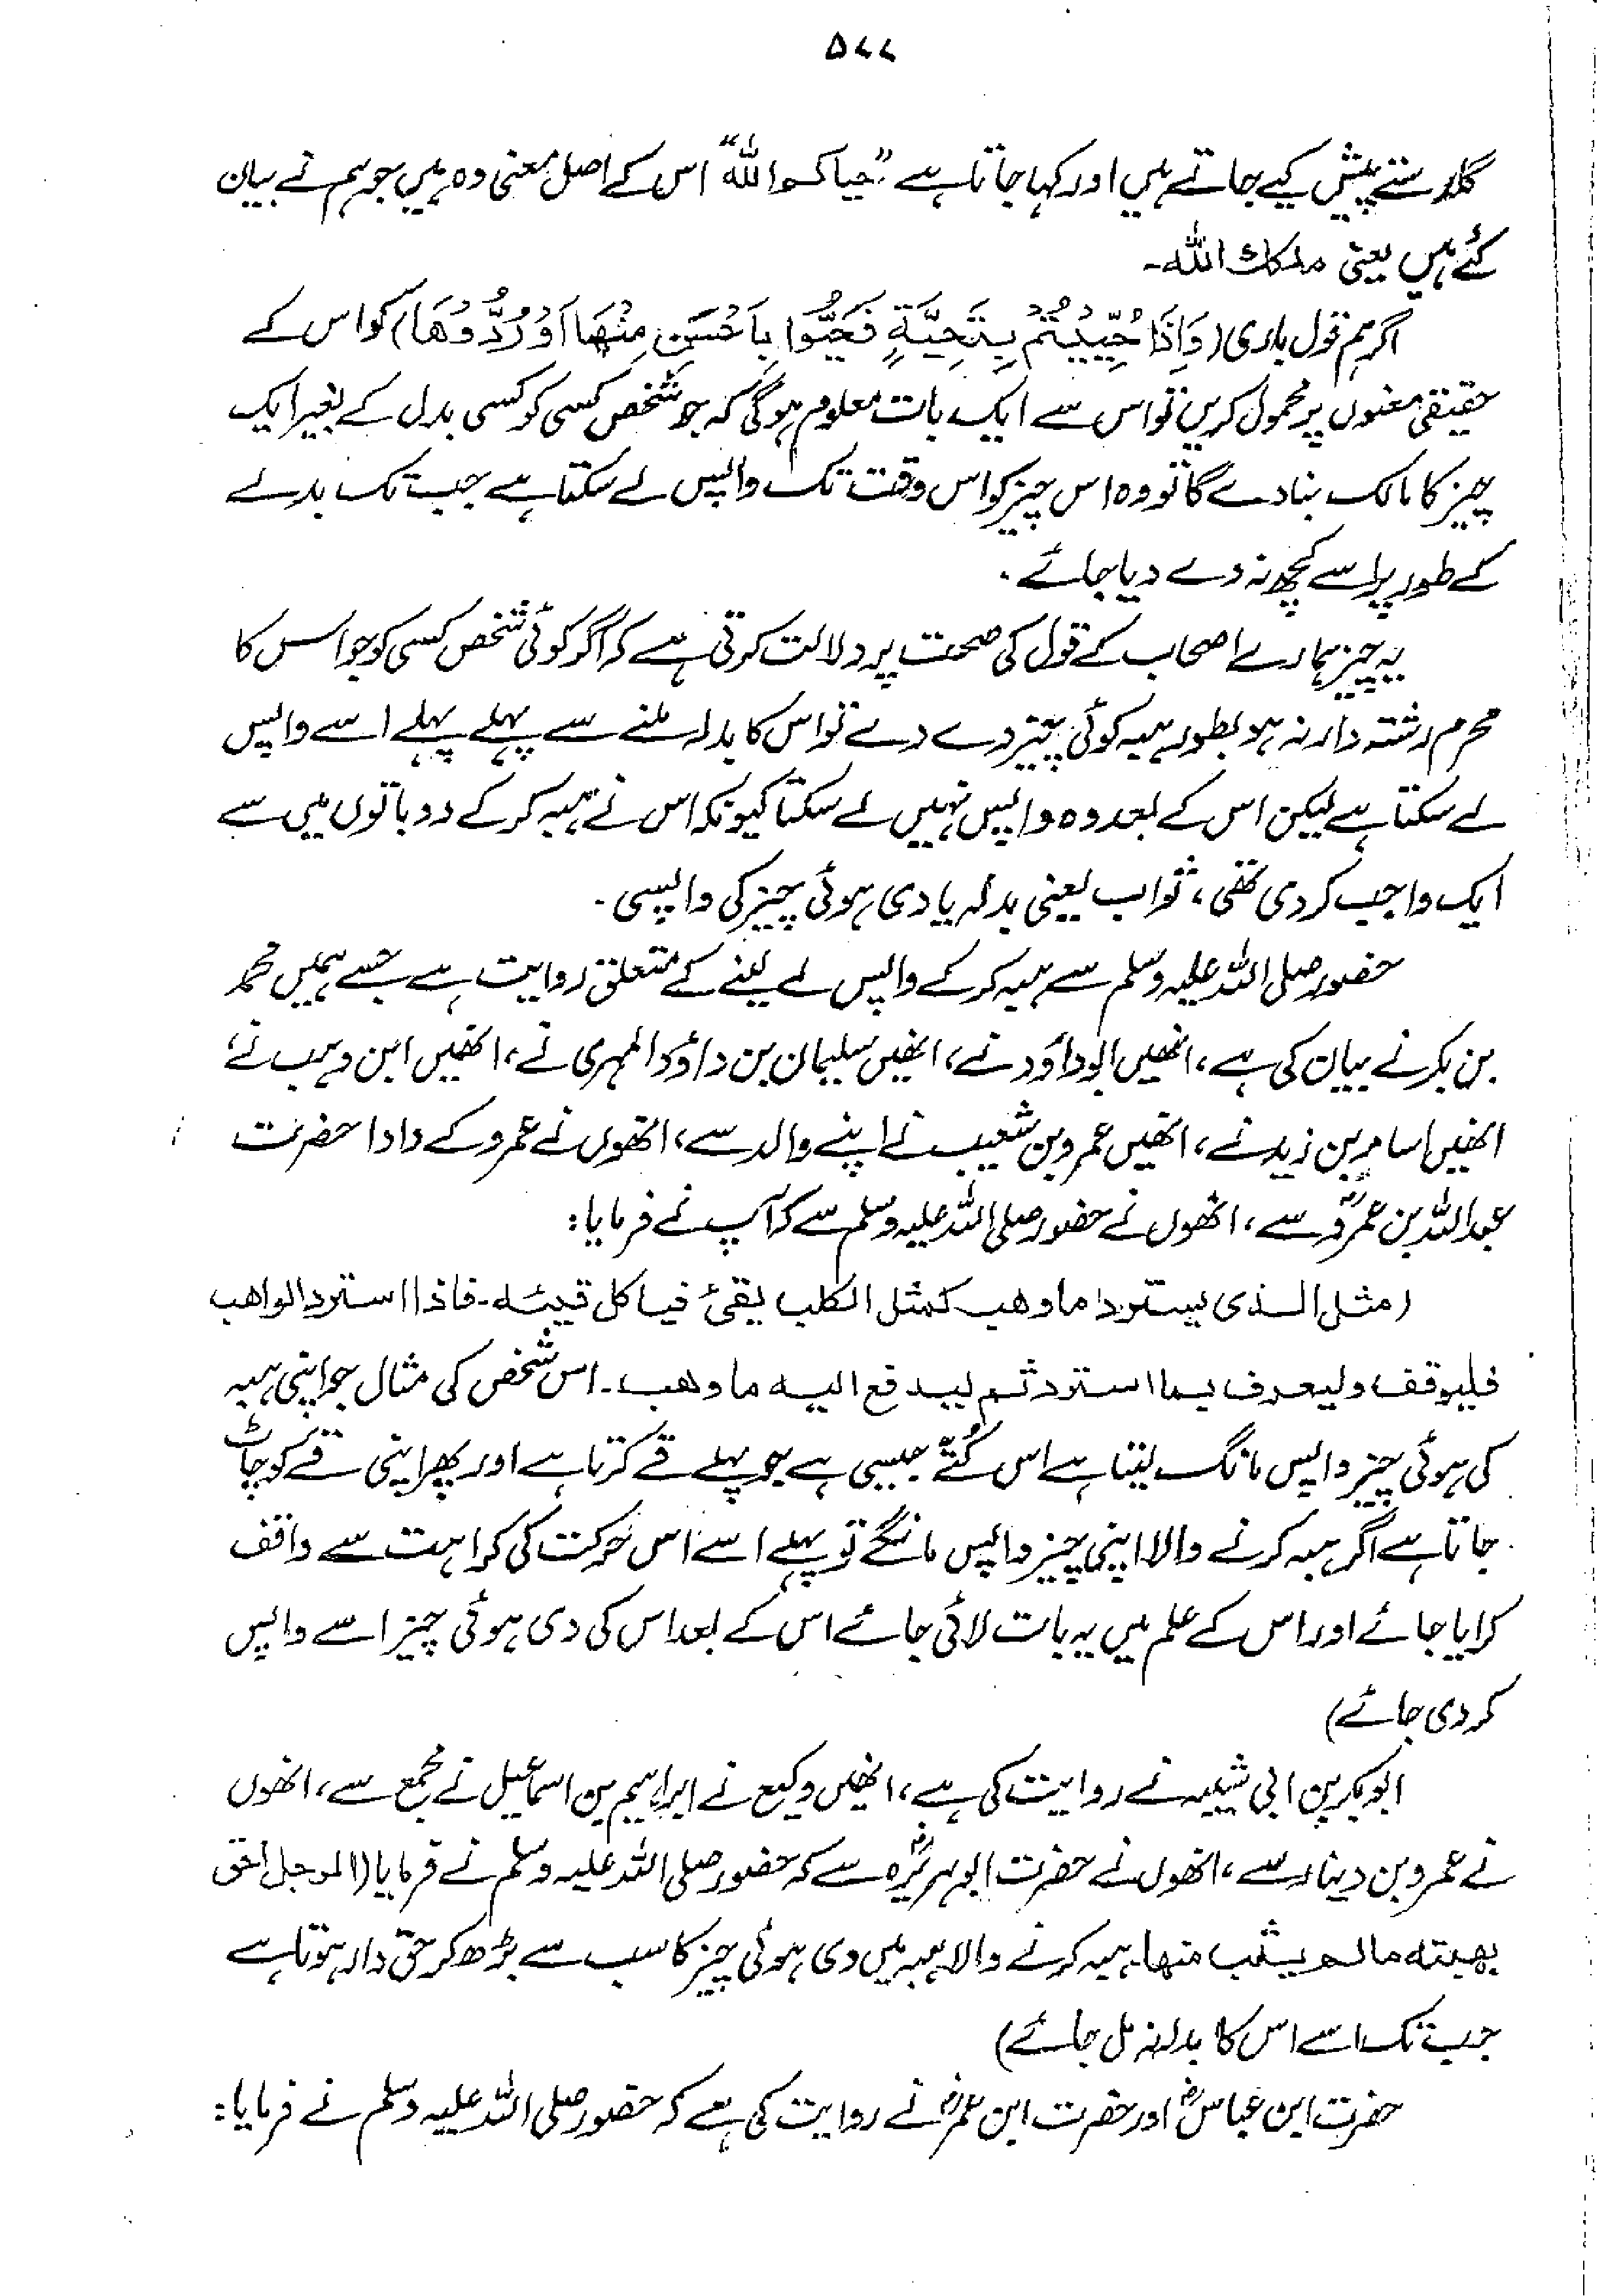 ۵۷۷
گلدستے پیش کیے جاتے ہیں اور کہا جاتا ہے "حیاکم اللہ" اس کے اصل معنی وہ ہیں جو ہم نے بیان
کئے ہیں یعنی ملکک اللہ۔
اگر ہم قول باری (وَاِذَا حُیِّیْتُمْ بِتَحِیَّةٍ فَحَیُّوْا بِاَحْسَنَ مِنْهَا اَوْ رُدُّوْهَا) کو اس کے
حقیقی معنوں پر محمول کریں تو اس سے ایک بات معلوم ہوگی کہ جو شخص کسی کو کسی بدل کے بغیر ایک
چیز کا مالک بنا دے گا تو وہ اس چیز کو اس وقت تک واپس لے سکتا ہے جب تک بدلے
کے طور پر اسے کچھ نہ دے دیا جائے۔
یہ چیز ہمارے اصحاب کے قول کی صحت پر دلالت کرتی ہے کہ اگر کوئی شخص کسی کو جو اس کا
محرم رشتہ دار نہ ہو بطور ہبہ کوئی چیز دے دے تو اس کا بدلہ ملنے سے پہلے پہلے اسے واپس
لے سکتا ہے لیکن اس کے بعد وہ واپس نہیں لے سکتا کیونکہ اس نے ہبہ کر کے دو باتوں میں سے
ایک واجب کر دی تھی، ثواب یعنی بدلہ یا دی ہوئی چیز کی واپسی۔
حضور صلی اللہ علیہ وسلم سے ہبہ کر کے واپس لے لینے کے متعلق روایت ہے جسے ہمیں محمد
بن بکر نے بیان کی ہے، انھیں ابو داؤد نے، انھیں سلیمان بن داؤد المہری نے، انھیں ابن وہب نے
انھیں اسامہ بن زید نے، انھیں عمرو بن شعیب نے اپنے والد سے، انھوں نے عمرو کے دادا حضرت
عبداللہ بن عمروؓ سے، انھوں نے حضور صلی اللہ علیہ وسلم سے کہ آپ نے فرمایا:
(مثل الذی یسترد ما وهب کمثل الکلب یقئ فیاکل قیئه۔ فاذا استرد الواهب
فلیوقف ولیعرف بما استرد ثم لیدفع الیه ما وهب۔ اس شخص کی مثال جو اپنی ہبہ
کی ہوئی چیز واپس مانگ لیتا ہے اس کُتّے جیسی ہے جو پہلے قے کرتا ہے اور پھر اپنی قے کو چاٹ
جاتا ہے اگر ہبہ کرنے والا اپنی چیز واپس مانگے تو پہلے اسے اس حرکت کی کراہت سے واقف
کرایا جائے اور اس کے علم میں یہ بات لائی جائے اس کے بعد اس کی دی ہوئی چیز اسے واپس
کر دی جائے)
ابوبکر بن ابی شیبہ نے روایت کی ہے، انھیں وکیع نے ابراہیم بن اسماعیل نے مجمع سے، انھوں
نے عمرو بن دینار سے، انھوں نے حضرت ابو ہریرہؓ سے کہ حضور صلی اللہ علیہ وسلم نے فرمایا (الرجل احق
بهبته مالم یثب منها۔ ہبہ کرنے والا ہبہ میں دی ہوئی چیز کا سب سے بڑھ کر حق دار ہوتا ہے
جب تک اسے اس کا بدلہ نہ مل جائے)
حضرت ابن عباسؓ اور حضرت ابن عمرؓ نے روایت کی ہے کہ حضور صلی اللہ علیہ وسلم نے فرمایا: